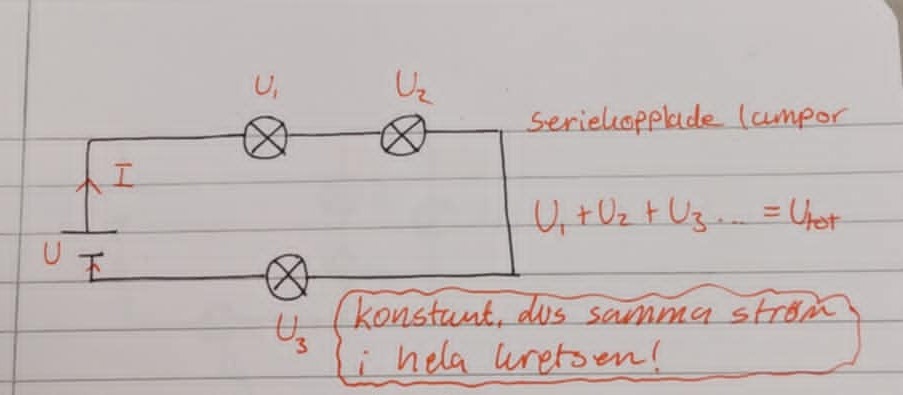 U₁ U₂
seriekopplade lampor
I
U₁ + U₂ + U₃ ... = Utot
U
U₃
konstant, dvs samma ström
i hela kretsen!